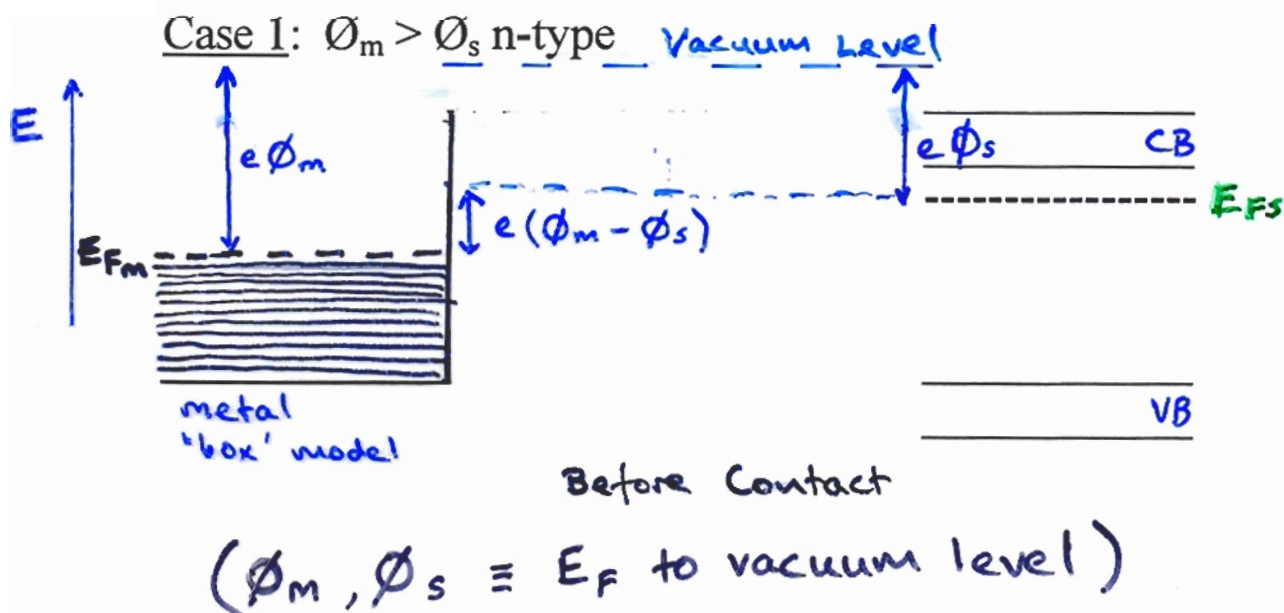 Case 1: Øm > Øs n-type
Vacuum Level
E
eØm
eØs
CB
EFs
e(Øm-Øs)
EFm
metal
'box' model
VB
Before Contact
(Øm, Øs ≡ EF to vacuum level)